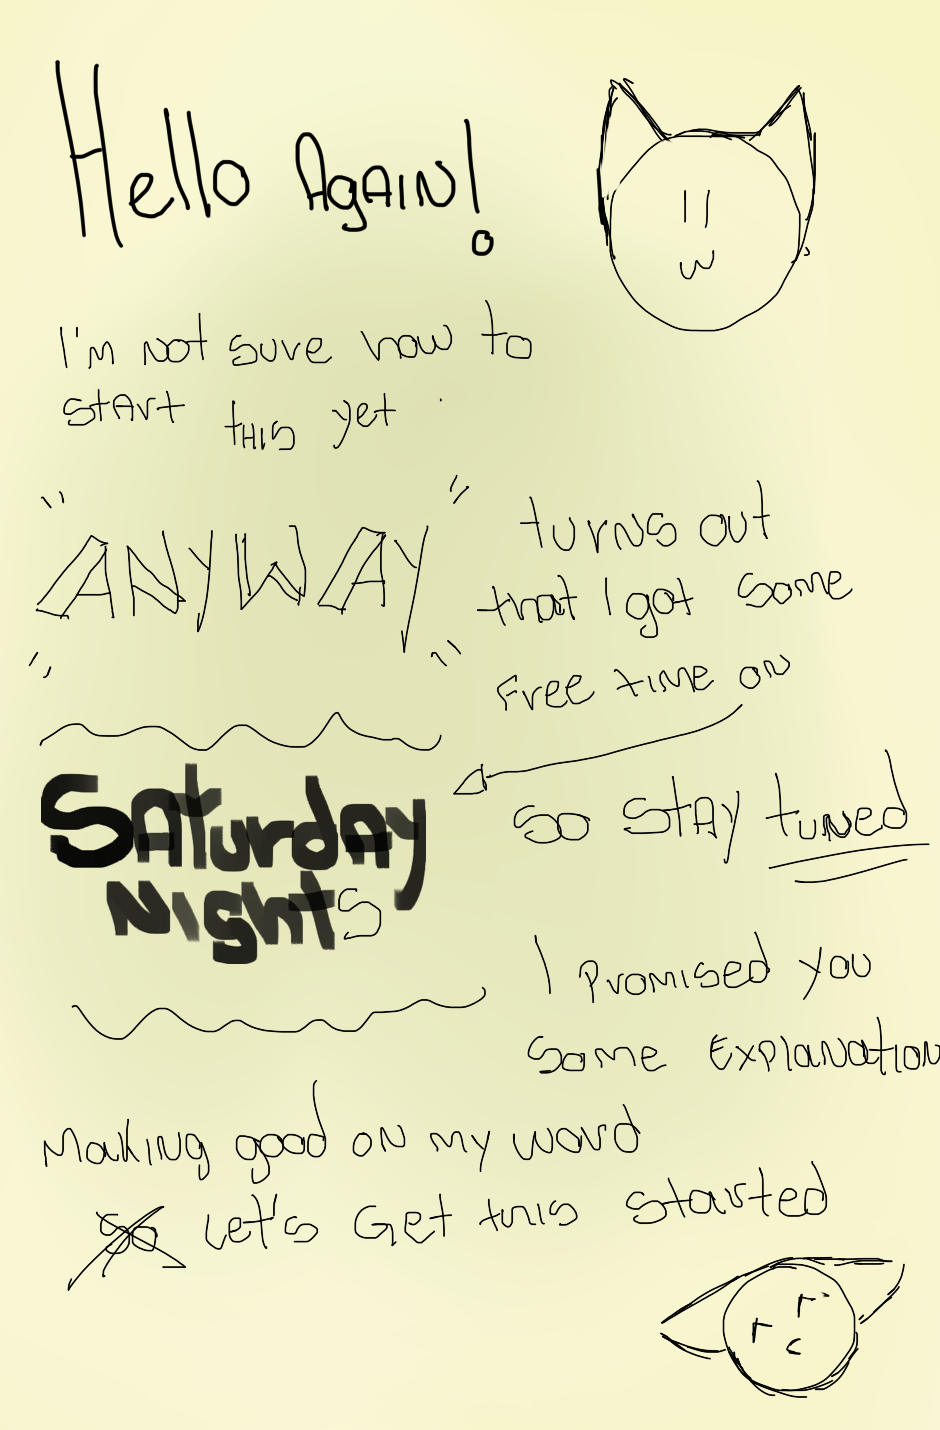 Hello AgAIN!
I'm not sure how to
stArt tHIS yet
ANYWAY
turns out
that I got some
free time on
SAturday
Nights
so stAy tuned
I promised you
some Explanation
Making good on my word
So Let's Get this started